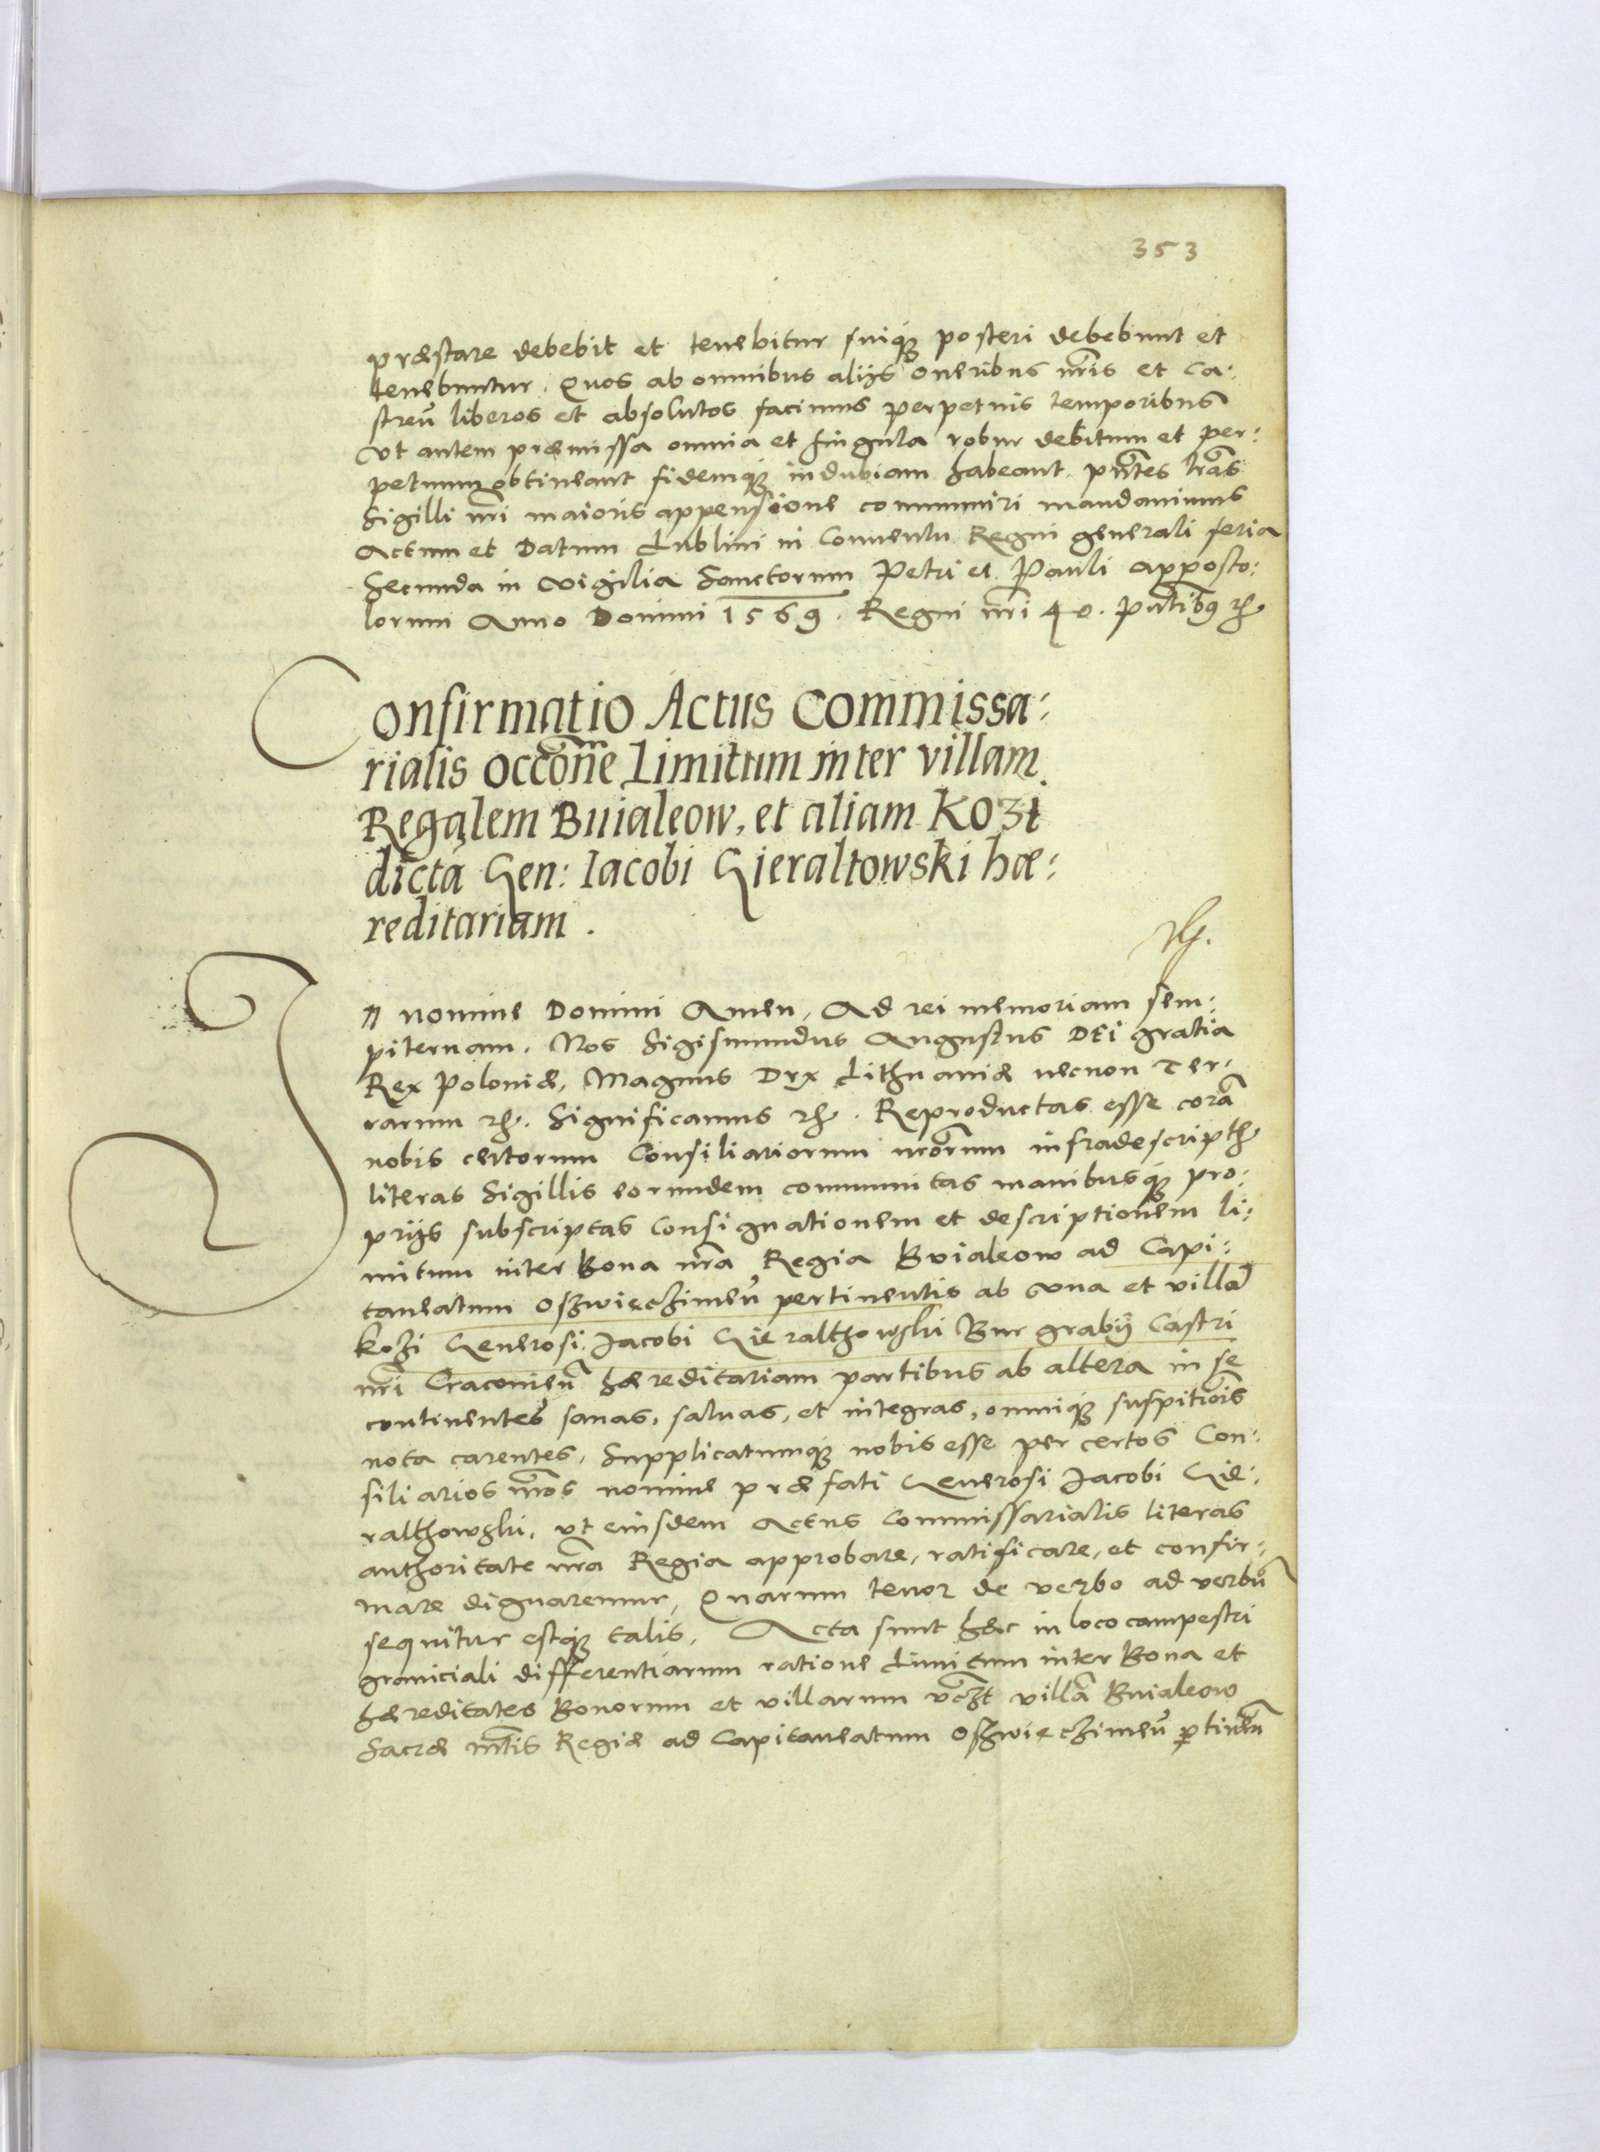 353
præstare debebit et tenebitur suiq3 posteri debebunt et
tenebuntur. Quos ab omnibus alijs oneribus nr̃is et Ca:
streñ liberos et absolutos facimus perpetuis temporibus
Vt autem præmissa omnia et singula robur debitum et per:
petuum obtineant fidemq3 indubiam habeant. pñtes lr̃as
Sigilli nr̃i maioris appensione communiri mandauimus
Actum et Datum Lublini in Conuentu Regni generali feria
Secunda in Vigilia Sanctorum Petri et Pauli apposto:
lorum Anno Domini 1569. Regni nr̃i 40. pñtib9 etc
Confirmatio Actus Commissa:
rialis occõne Limitum inter villam
Regalem Buialeow, et aliam Kozi
dictã Gen: Iacobi Gieraltowski hæ:
reditariam.
In nomine Domini Amen, Ad rei memoriam sem:
piternam. Nos Sigismundus Augustus DEI gratia
Rex Poloniæ, Magnus Dux Lithuaniæ necnon Ter:
rarum etc. Significamus etc. Reproductas esse corã
nobis certorum Consiliariorum nr̃orum infradescript
literas Sigillis eorundem communitas manibusq3 pro:
prijs subscriptas Consignationem et descriptionem li:
mitum inter Bona nr̃a Regia Buialeow ad Capi:
taneatum Oszwieczimeñ pertinentis ab vna et villã
Kozi Generosi Jacobi Gieralthowski Burgrabij Castri
nr̃i Cracouieñ hæreditariam partibus ab altera in se
continentes sanas, saluas, et integras, omniq3 suspitiõis
nota carentes, Supplicatumq3 nobis esse per certos Con:
siliarios nr̃os nomine præfati Generosi Jacobi Gie:
ralthowski, vt eiusdem Actus Commissarialis literas
authoritate nr̃a Regia approbare, ratificare, et confir:
mare dignaremur, Quarum tenor de verbo ad verbũ
sequitur estq3 talis. Acta sunt hæc in loco campestri
graniciali differentiarum ratione Limitum inter Bona et
hæreditates Bonorum et villarum vcz̃t villã Buialeow
Sacræ mt̃is Regiæ ad Capitaneatum Oszwieczimeñ ptineñ